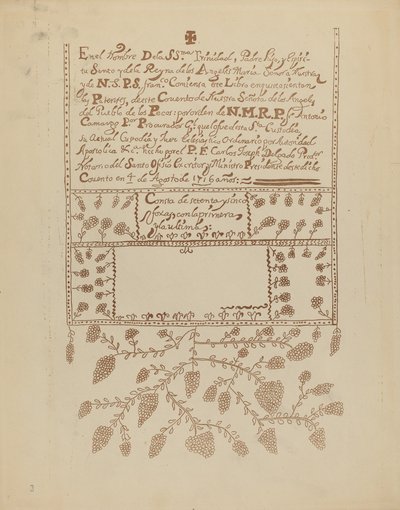 En el Nombre De la SSma Trinidad, Padre Hijo, y Espiri-
tu Santo y de la Reyna de los Angeles Maria Señora Nuestra
y de N. S. P. S. Franco Comiensa este Libro en que se asientan
las Patentes, de este Convento de Nuestra Señora de los Angeles
del Pueblo de los Pecos: por orden de N. M. R. P. Fr. Antonio
Camargo Por Procurador Gl. que fue de esta Sta Custodia
Custodio y Juez Eclesiastico Ordinario por Autoridad
Apostolica &c. Hecho por el P. F. Carlos Joseph Delgado
Notario del Santo Oficio Escritor y Ministro Presidente de este dicho
Convento en 4 de Agosto de 1716 años:
Consta de setenta y sinco
fojas con la primera
y la ultima: